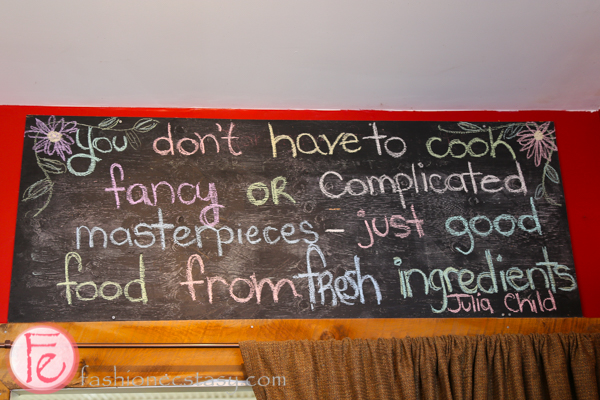 you don't have to cook
fancy or complicated
masterpieces - just good
food from fresh ingredients
Julia Child
Fe
fashionecstasy.com